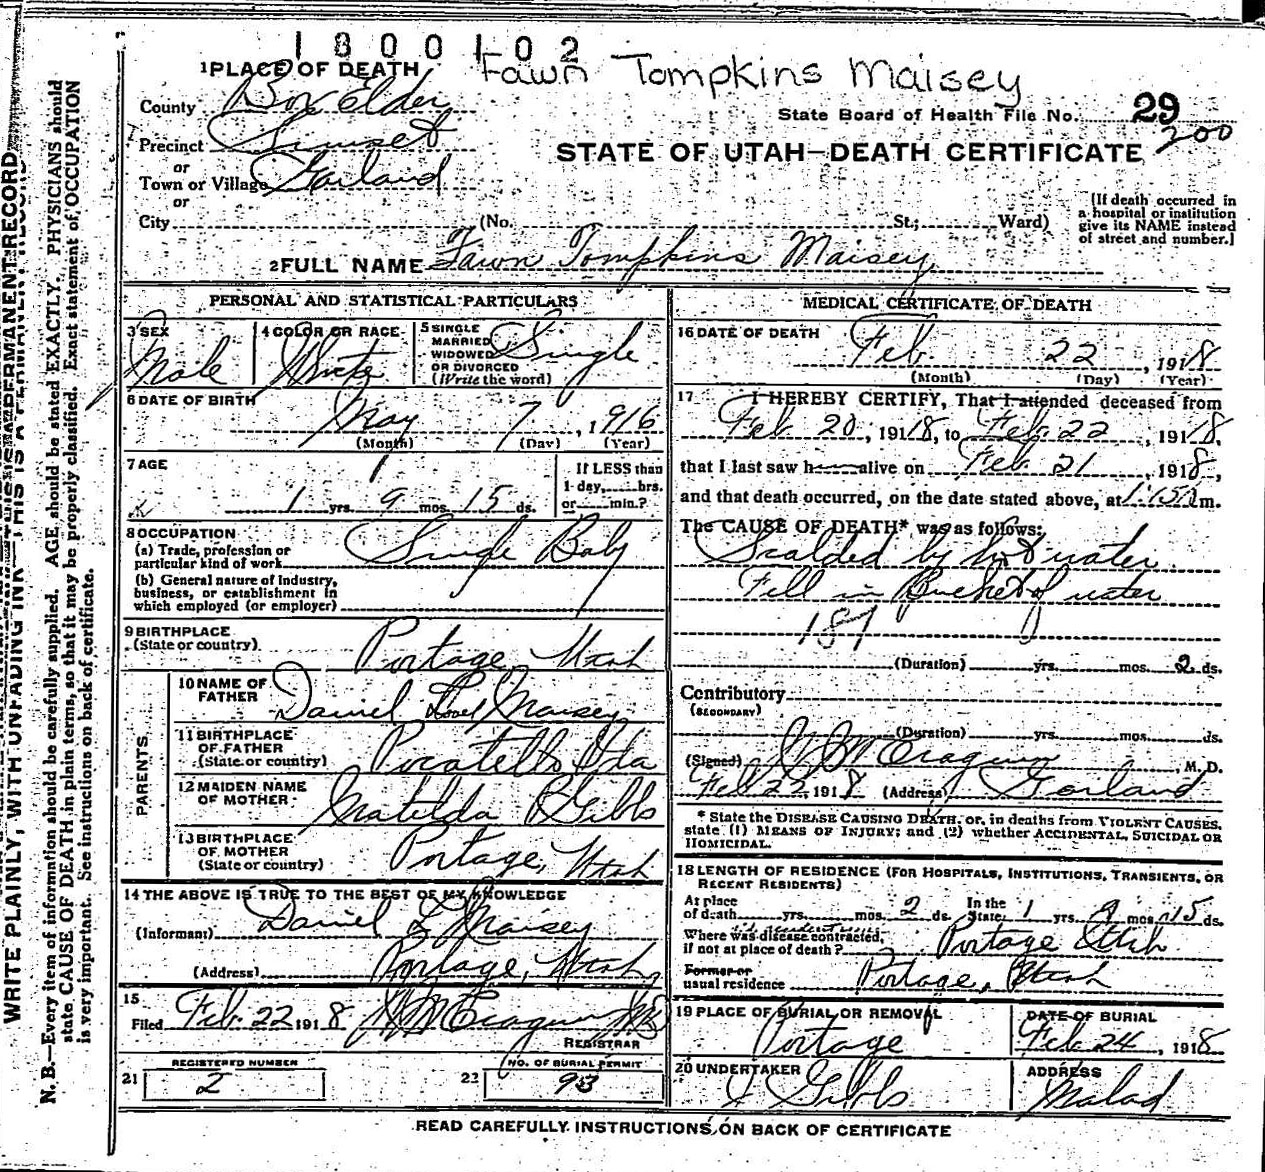 1 8 0 0 1 0 2
Fawn Tompkins Maisey
1 PLACE OF DEATH
County Box Elder
State Board of Health File No. 29
200
Precinct Sunset
or
STATE OF UTAH—DEATH CERTIFICATE
Town or Village Garland
or
City (No. St.; Ward)
[If death occurred in
a hospital or institution
give its NAME instead
of street and number.]
2 FULL NAME Fawn Tompkins Maisey
PERSONAL AND STATISTICAL PARTICULARS
3 SEX
Male
4 COLOR OR RACE
White
5 SINGLE
MARRIED
WIDOWED
OR DIVORCED
(Write the word)
Single
6 DATE OF BIRTH
May 7, 1916
(Month) (Day) (Year)
7 AGE
1 yrs. 9 mos. 15 ds.
If LESS than
1 day, hrs.
or min.?
8 OCCUPATION
(a) Trade, profession or
particular kind of work Single Baby
(b) General nature of industry,
business, or establishment in
which employed (or employer)
9 BIRTHPLACE
(State or country) Portage Utah
PARENTS
10 NAME OF
FATHER Daniel Lovel Maisey
11 BIRTHPLACE
OF FATHER
(State or country) Pocatello Ida
12 MAIDEN NAME
OF MOTHER Matilda B Gibbs
13 BIRTHPLACE
OF MOTHER
(State or country) Portage, Utah
14 THE ABOVE IS TRUE TO THE BEST OF MY KNOWLEDGE
(Informant) Daniel L Maisey
(Address) Portage, Utah
15
Filed Feb. 22 1918
REGISTRAR
REGISTERED NUMBER
21 2
NO. OF BURIAL PERMIT
22 93
MEDICAL CERTIFICATE OF DEATH
16 DATE OF DEATH
Feb. 22, 1918
(Month) (Day) (Year)
17 I HEREBY CERTIFY, That I attended deceased from
Feb 20, 1918, to Feb. 22, 1918,
that I last saw h alive on Feb. 21, 1918,
and that death occurred, on the date stated above, at m.
The CAUSE OF DEATH* was as follows:
Scalded by hot water
Fell in Bucket of water
189
(Duration) yrs. mos. 2 ds.
Contributory
(SECONDARY)
(Duration) yrs. mos. ds.
(Signed) M. D.
Feb 22, 1918 (Address) Garland
* State the DISEASE CAUSING DEATH, or, in deaths from VIOLENT CAUSES,
state (1) MEANS OF INJURY; and (2) whether ACCIDENTAL, SUICIDAL OR
HOMICIDAL.
18 LENGTH OF RESIDENCE (FOR HOSPITALS, INSTITUTIONS, TRANSIENTS, OR
RECENT RESIDENTS)
At place
of death yrs. mos. 2 ds.
In the
State 1 yrs. 9 mos. 15 ds.
Where was disease contracted,
if not at place of death? Portage Utah
Former or
usual residence Portage, Utah
19 PLACE OF BURIAL OR REMOVAL
Portage
DATE OF BURIAL
Feb 24, 1918
20 UNDERTAKER
J Gibbs
ADDRESS
Malad
READ CAREFULLY INSTRUCTIONS ON BACK OF CERTIFICATE
WRITE PLAINLY, WITH UNFADING INK—THIS IS A PERMANENT RECORD
N. B.—Every item of information should be carefully supplied. AGE should be stated EXACTLY. PHYSICIANS should
state CAUSE OF DEATH in plain terms, so that it may be properly classified. Exact statement of OCCUPATION
is very important. See instructions on back of certificate.